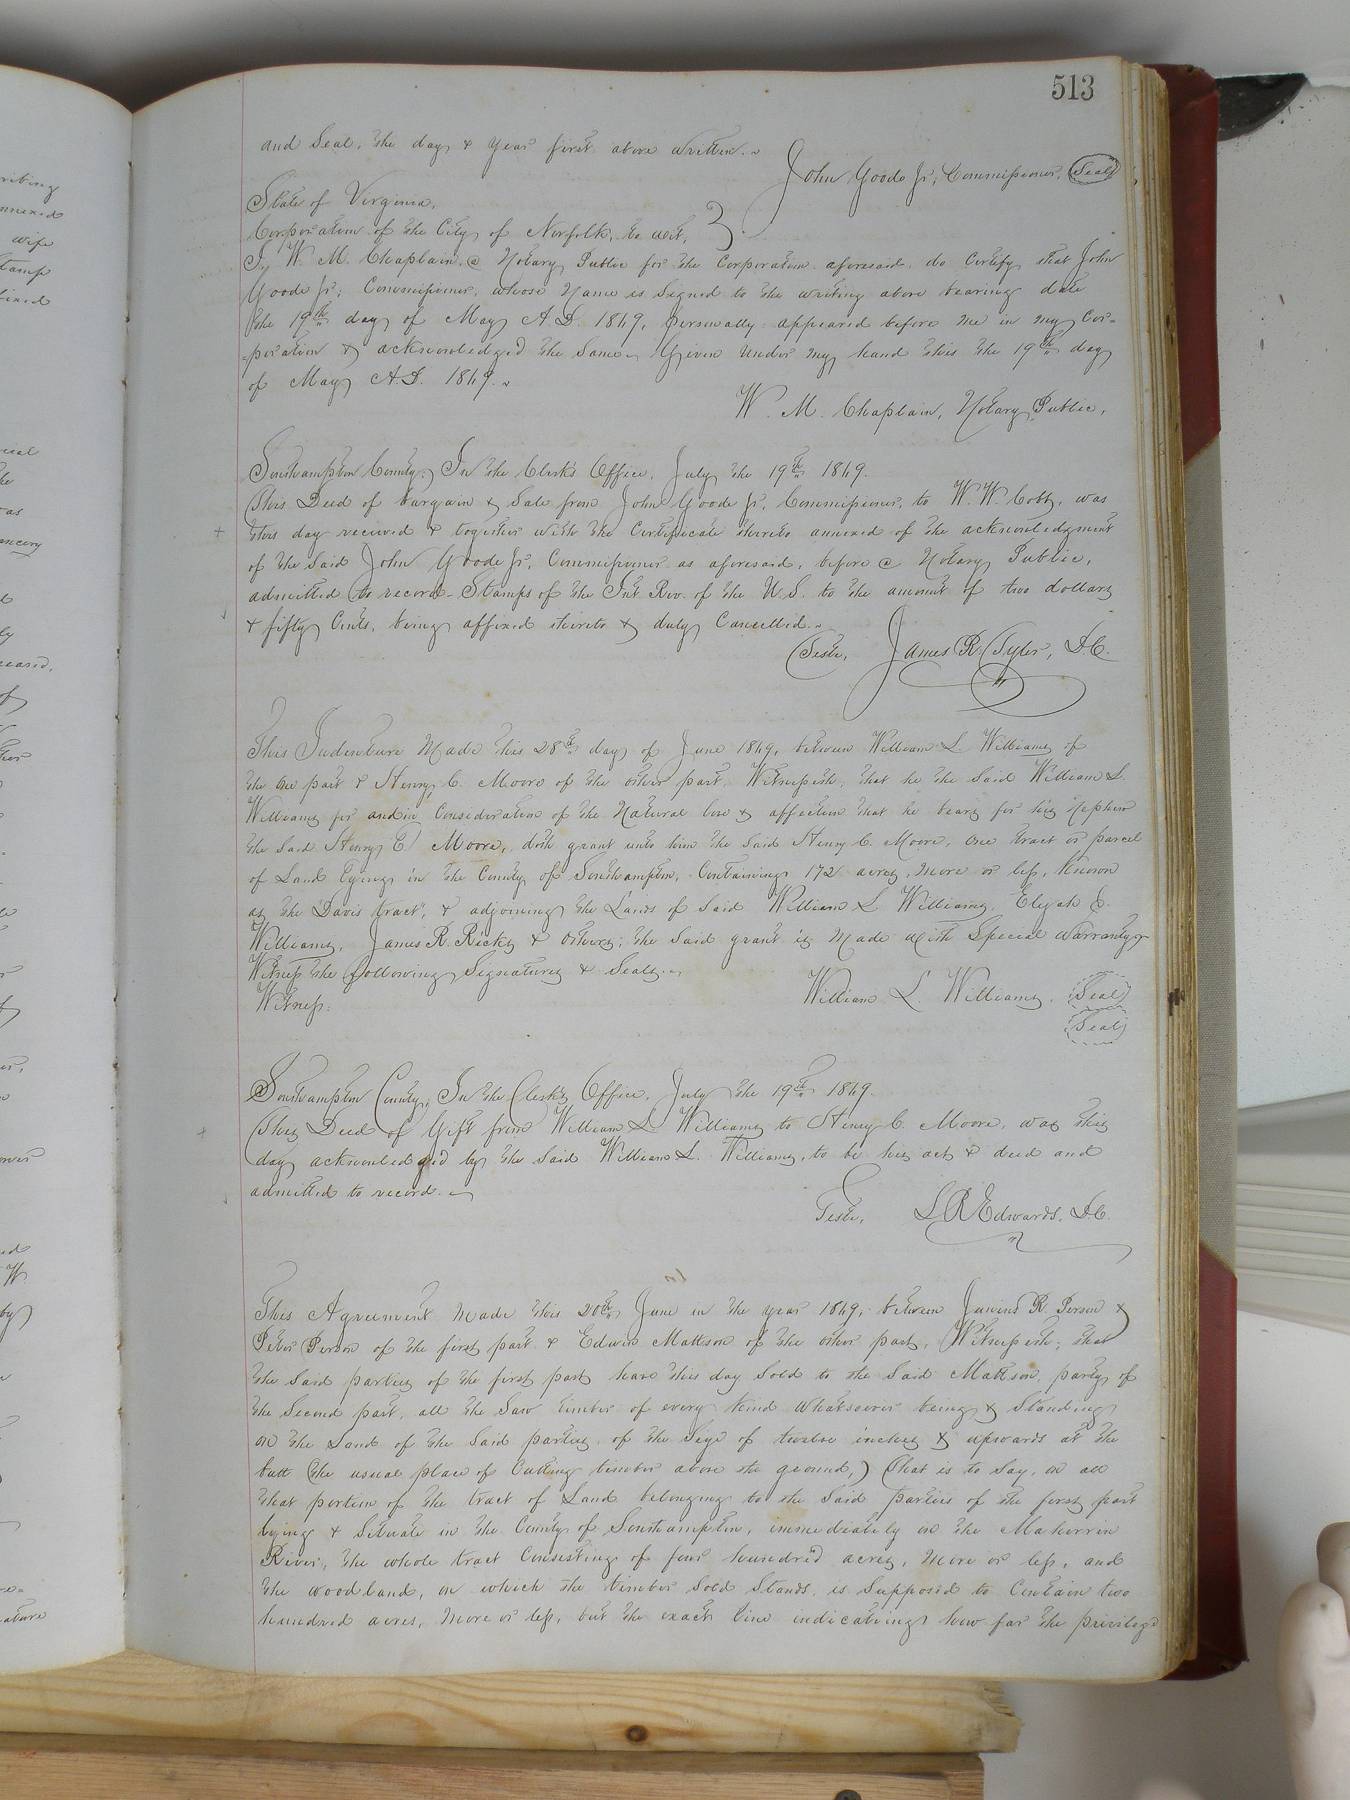 513
and Seal, the day & year first above written.
John Goode Jr, Commissioner, Seal
State of Virginia,
Corporation of the City of Norfolk, to wit,
I, W. M. Chaplain, a Notary Public for the Corporation aforesaid do Certify that John
Goode Jr; Commissioner, whose name is signed to the writing above bearing date
the 19th day of May A.D. 1869, personally appeared before me in my Cor-
-poration & acknowledged the same. Given under my hand this the 19th day
of May A.D. 1869.
W. M. Chaplain, Notary Public,
Southampton County; In the Clerk's Office, July the 19th 1869.
This Deed of bargain & Sale from John Goode Jr, Commissioner, to W. W. Cobb, was
this day received & together with the Certificate thereto annexed of the acknowledgment
of the said John Goode Jr, Commissioner as aforesaid, before a Notary Public,
admitted to record - Stamps of the Int. Rev. of the U.S. to the amount of two dollars
& fifty Cents, being affixed thereto & duly Cancelled.
Teste, James R. Tyler, D.C.
This Indenture Made this 28th day of June 1869, between William L. Williams of
the one part & Henry C. Moore of the other part, Witnesseth, that he the said William L.
Williams for and in Consideration of the Natural love & affection that he bears for his Nephew
the said Henry C. Moore, doth grant unto him the said Henry C. Moore, one tract or parcel
of Land lying in the County of Southampton, Containing 172 acres, more or less, known
as the "Davis tract", & adjoining the Lands of said William L Williams, Elijah J.
Williams, James R. Ricks & others; the said grant is made with Special warranty
Witness the following Signatures & Seals.
Witness: William L. Williams, Seal
Seal
Southampton County, In the Clerk's Office, July the 19th 1869.
This Deed of Gift from William L Williams to Henry C. Moore, was this
day acknowledged by the said William L. Williams, to be his act & deed and
admitted to record.
Teste, L R Edwards, D.C.
This Agreement Made this 20th June in the year 1869, between Junius R. Person &
Peter Person of the first part & Edwin Mattson of the other part, Witnesseth; that
the said parties of the first part have this day sold to the said Mattson, party of
the second part, all the Saw timber of every kind whatsoever being & Standing
on the Land of the said parties of the size of twelve inches & upwards at the
butt (the usual place of Cutting timber above the ground,) that is to say, on all
that portion of the tract of Land belonging to the said parties of the first part
lying & Situate in the County of Southampton, immediately on the Meherrin
River, the whole tract Consisting of four hundred acres, more or less, and
the woodland, on which the timber sold stands is supposed to Contain two
hundred acres, more or less, but the exact line indicating how far the privilege